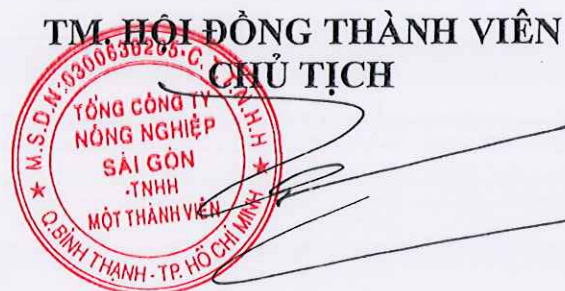 TM. HỘI ĐỒNG THÀNH VIÊN
CHỦ TỊCH
M.S.D.N:0300636205-C.T.T.N.H.H
TỔNG CÔNG TY
NÔNG NGHIỆP
SÀI GÒN
-TNHH
MỘT THÀNH VIÊN
Q.BÌNH THẠNH-TP. HỒ CHÍ MINH